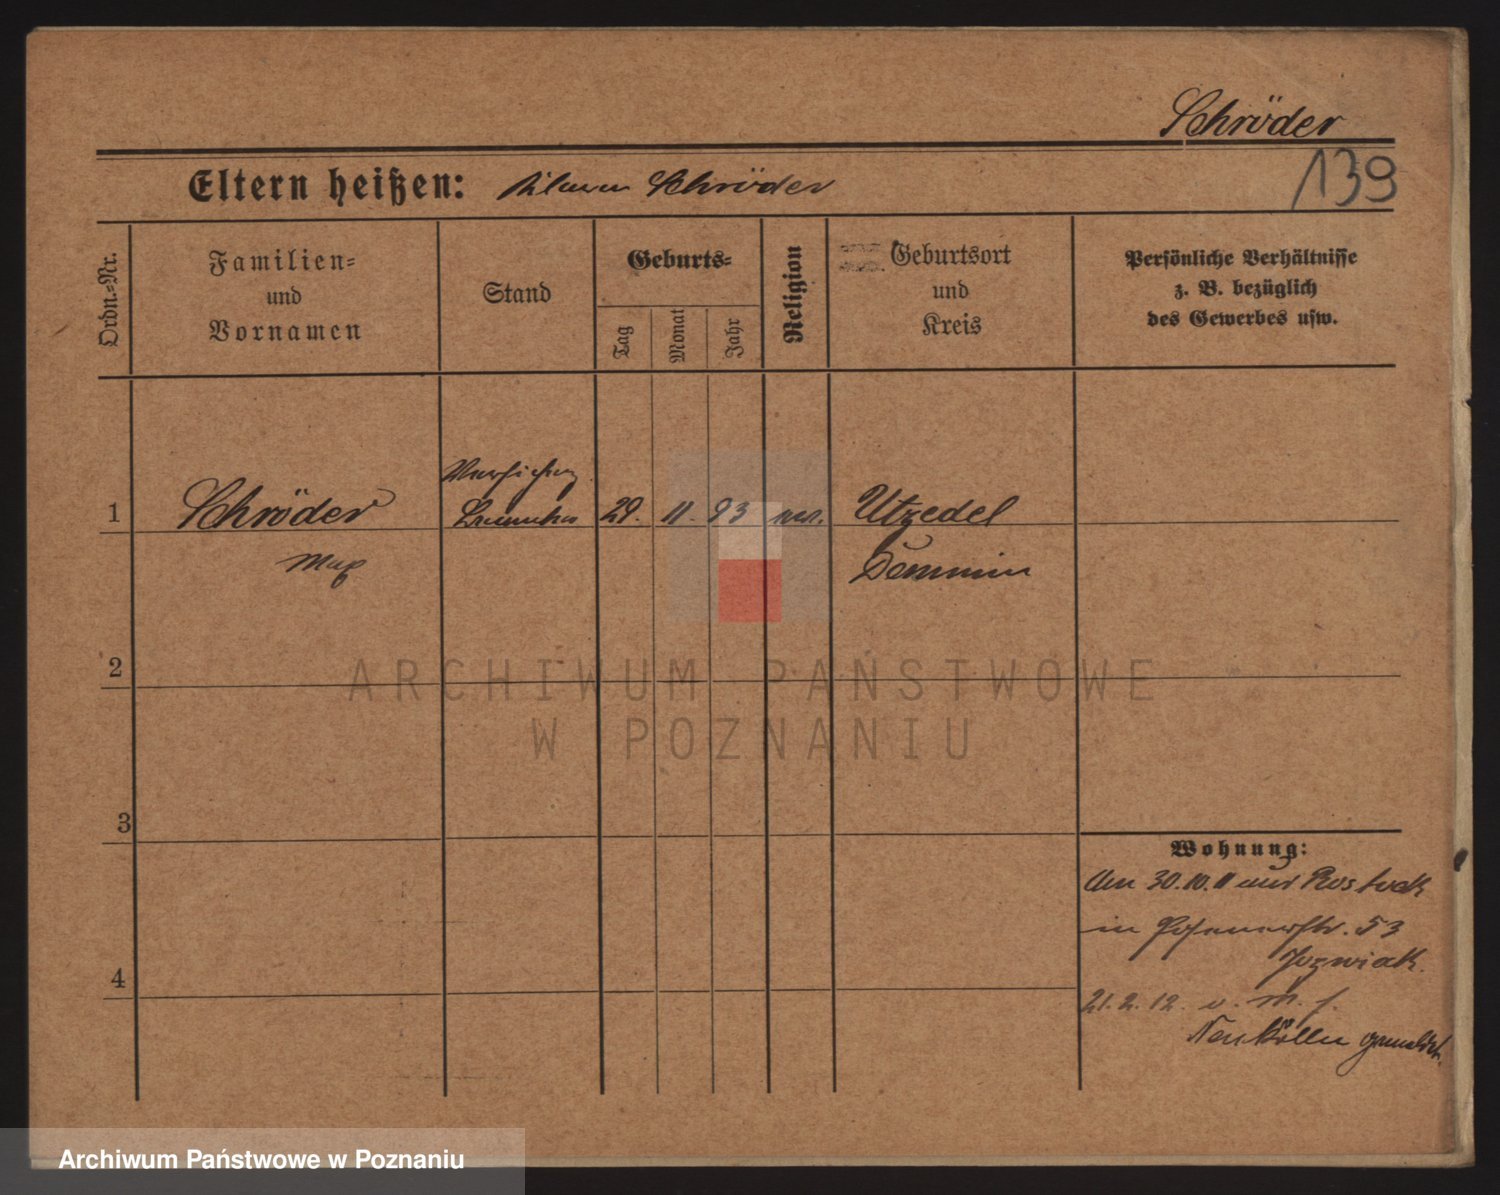 Schröder
139
Eltern heißen: Schröder
Ordn.-Nr.
Familien-
und
Vornamen
Stand
Geburts-
Tag
Monat
Jahr
Religion
Geburtsort
und
Kreis
Persönliche Verhältnisse
z. B. bezüglich
des Gewerbes usw.
1
Schröder
Max
29. 11. 93
Utzedel
Demmin
2
ARCHIWUM PAŃSTWOWE
W POZNANIU
3
Wohnung:
Am 30.10.11 aus Rostock
in Posenerstr. 53
Jozwiak.
4
21.2.12. v. M. f.
Neukölln gemeldet.
Archiwum Państwowe w Poznaniu